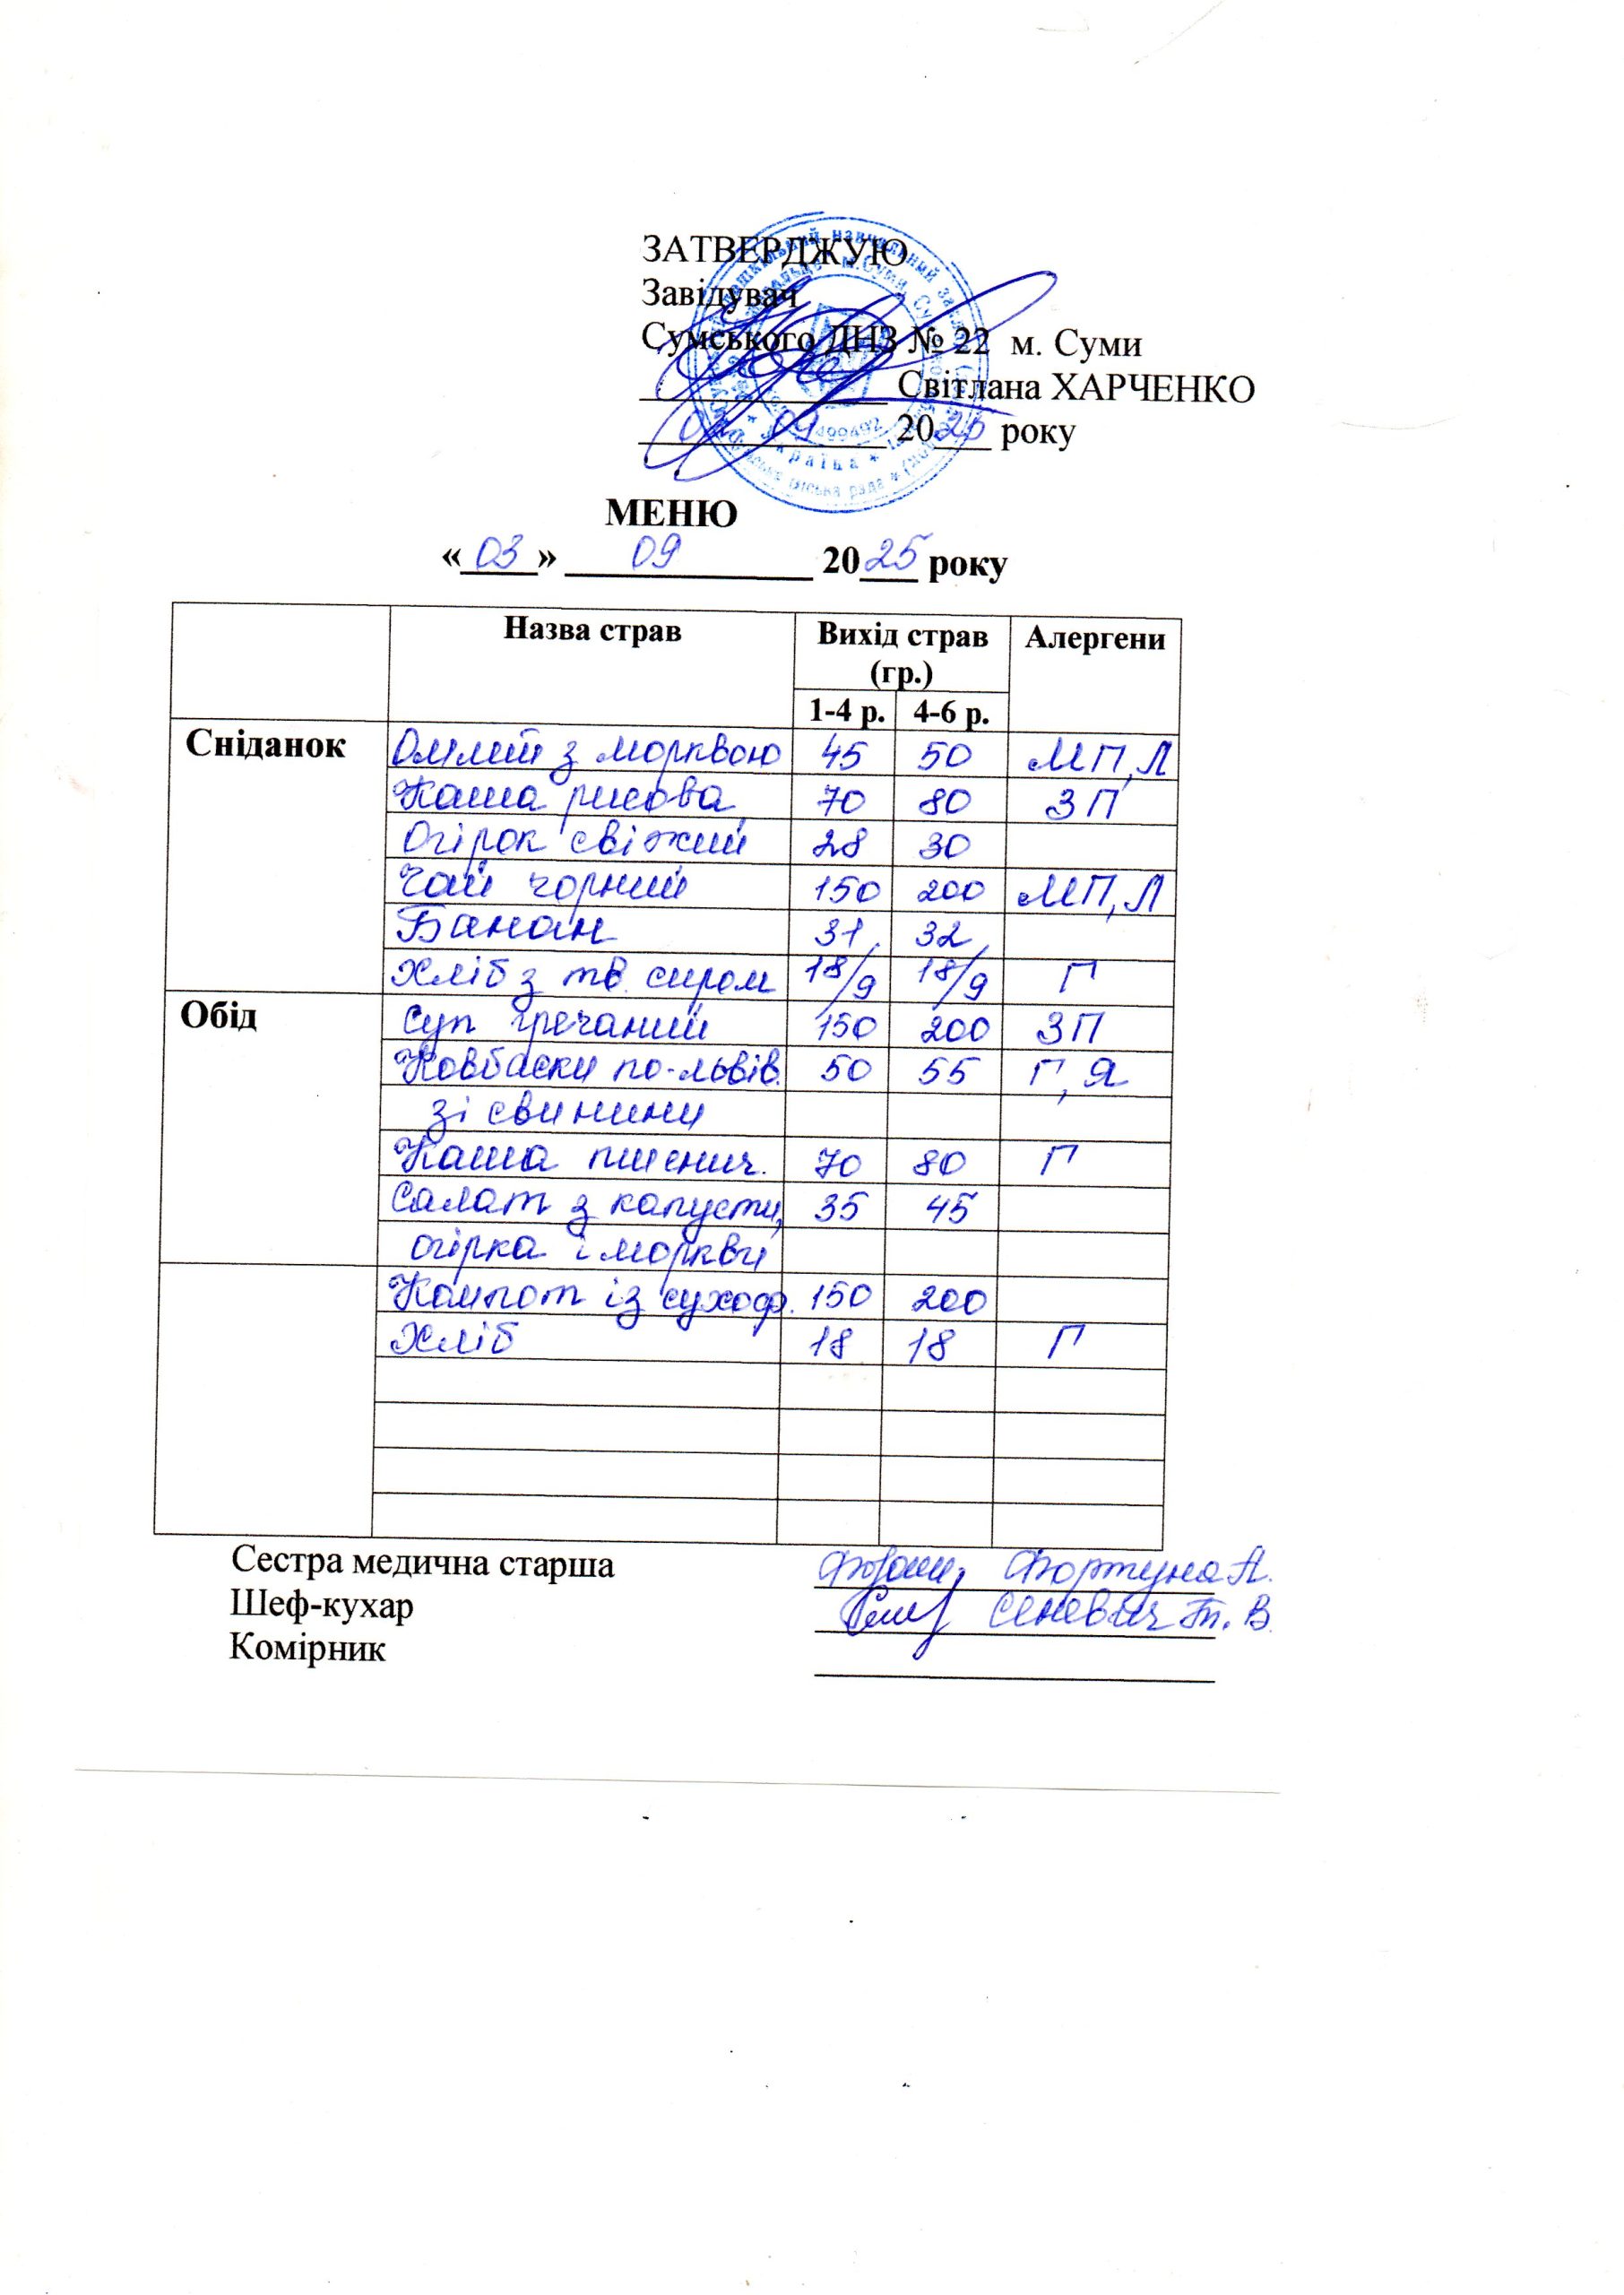 ЗАТВЕРДЖУЮ
Завідувач
Сумського ДНЗ № 22 м. Суми
Світлана ХАРЧЕНКО
09 2025 року
МЕНЮ
«03» 09 2025 року
Назва страв Вихід страв (гр.) Алергени
1-4 р. 4-6 р.
Сніданок Омлет з морквою 45 50 МП, Л
Каша рисова 70 80 ЗП
Огірок свіжий 28 30
Чай чорний 150 200 МП, Л
Банан 31 32
Хліб з тв. сиром 18/9 18/9 Г
Обід Суп гречаний 150 200 ЗП
Ковбаски по-львів. 50 55 Г, Я
зі свинини
Каша пшенич. 70 80 Г
Салат з капусти, 35 45
огірка і моркви
Компот із сухоф. 150 200
Хліб 18 18 Г
Сестра медична старша Фортуна А.
Шеф-кухар Сеневич Т. В.
Комірник